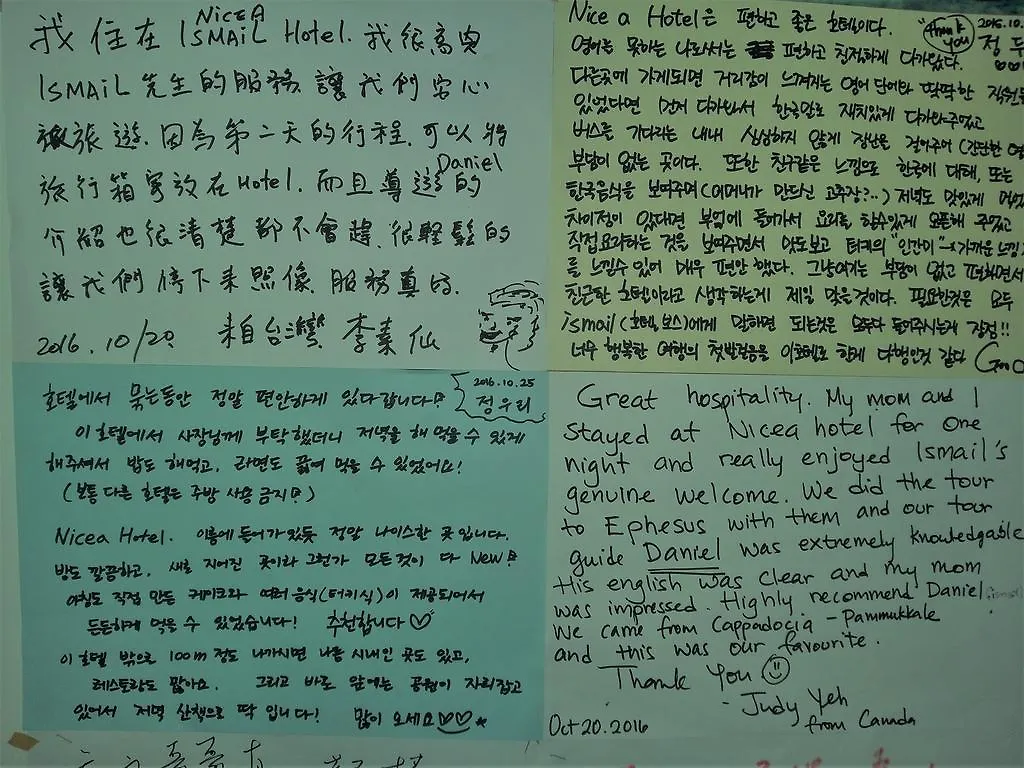 我住在 ISMAiL Hotel. 我很高興
NiCEA
ISMAiL 先生的服務 讓我們安心
旅遊. 因為第二天的行程. 可以將
旅行箱寄放在Hotel. 而且導遊的
Daniel
介紹也很清楚都不會趕. 很輕鬆的
讓我們停下來照像. 服務真的.
2016. 10/20 來自台灣 李素仙
Nice a Hotel은 편하고 좋은 호텔이다.
"thank you"
2016.10.
정우
영어를 못하는 나로서는 편하고 친절하게 다가왔다.
다른곳에 가게되면 거리감이 느껴지는 영어 단어와 딱딱한 직원
있었다면 먼저 다가와서 한국말로 재치있게 다가와주었고
버스를 기다리는 내내 심심하지 않게 장난을 걸어주어 (간단한 영
부담이 없는 곳이다. 또한 친구같은 느낌으로 한국에 대해, 또는
한국음식을 보여주며(어머니가 만드신 고추장?..) 저녁도 맛있게
차이점이 있다면 부엌에 들어가서 요리를 할수있게 오픈해 주었고
직접요리하는 것을 보여주면서 맛도보고 터키의 "인간미" 가까운 느낌
를 느낄수 있어 매우 편안 했다. 그냥여기는 부담이 없고 편하면서
친근한 호텔이라고 생각하는게 제일 맞은것이다. 필요한것은 모두
ismail (호텔 보스)에게 말하면 되는것은 모두다 들어주시는게 장점!!
너무 행복한 여행의 첫발걸음을 이호텔로 한게 다행인것 같다 Goo
호텔에서 묵는동안 정말 편안하게 있다갑니다!
2016.10.25
정우리
이 호텔에서 사장님께 부탁했더니 저녁을 해 먹을 수 있게
해주셔서 밥도 해먹고, 라면도 끓여 먹을 수 있었어요!
(보통 다른 호텔은 주방 사용 금지!)
Nicea Hotel. 이름에 들어가 있듯 정말 나이스한 곳입니다.
방도 깔끔하고, 새로 지어진 곳이라 그런가 모든것이 다 New!
아침도 직접 만든 케이크와 여러 음식(터키식)이 제공되어서
든든하게 먹을 수 있었습니다! 추천합니다♡
이 호텔 밖으로 100m 정도 나가시면 나름 시내인 곳도 있고,
레스토랑도 많아요. 그리고 바로 앞에는 공원이 자리잡고
있어서 저녁 산책으로 딱 입니다! 많이 오세요♡♡
Great hospitality. My mom and I
stayed at Nicea hotel for one
night and really enjoyed Ismail's
genuine welcome. We did the tour
to Ephesus with them and our tour
guide Daniel was extremely knowledgable
His english was clear and my mom
was impressed. Highly recommend Daniel
We came from Cappadocia - Pammukkale
and this was our favourite.
Thank You ☺
- Judy Yeh
from Canada
Oct 20.2016